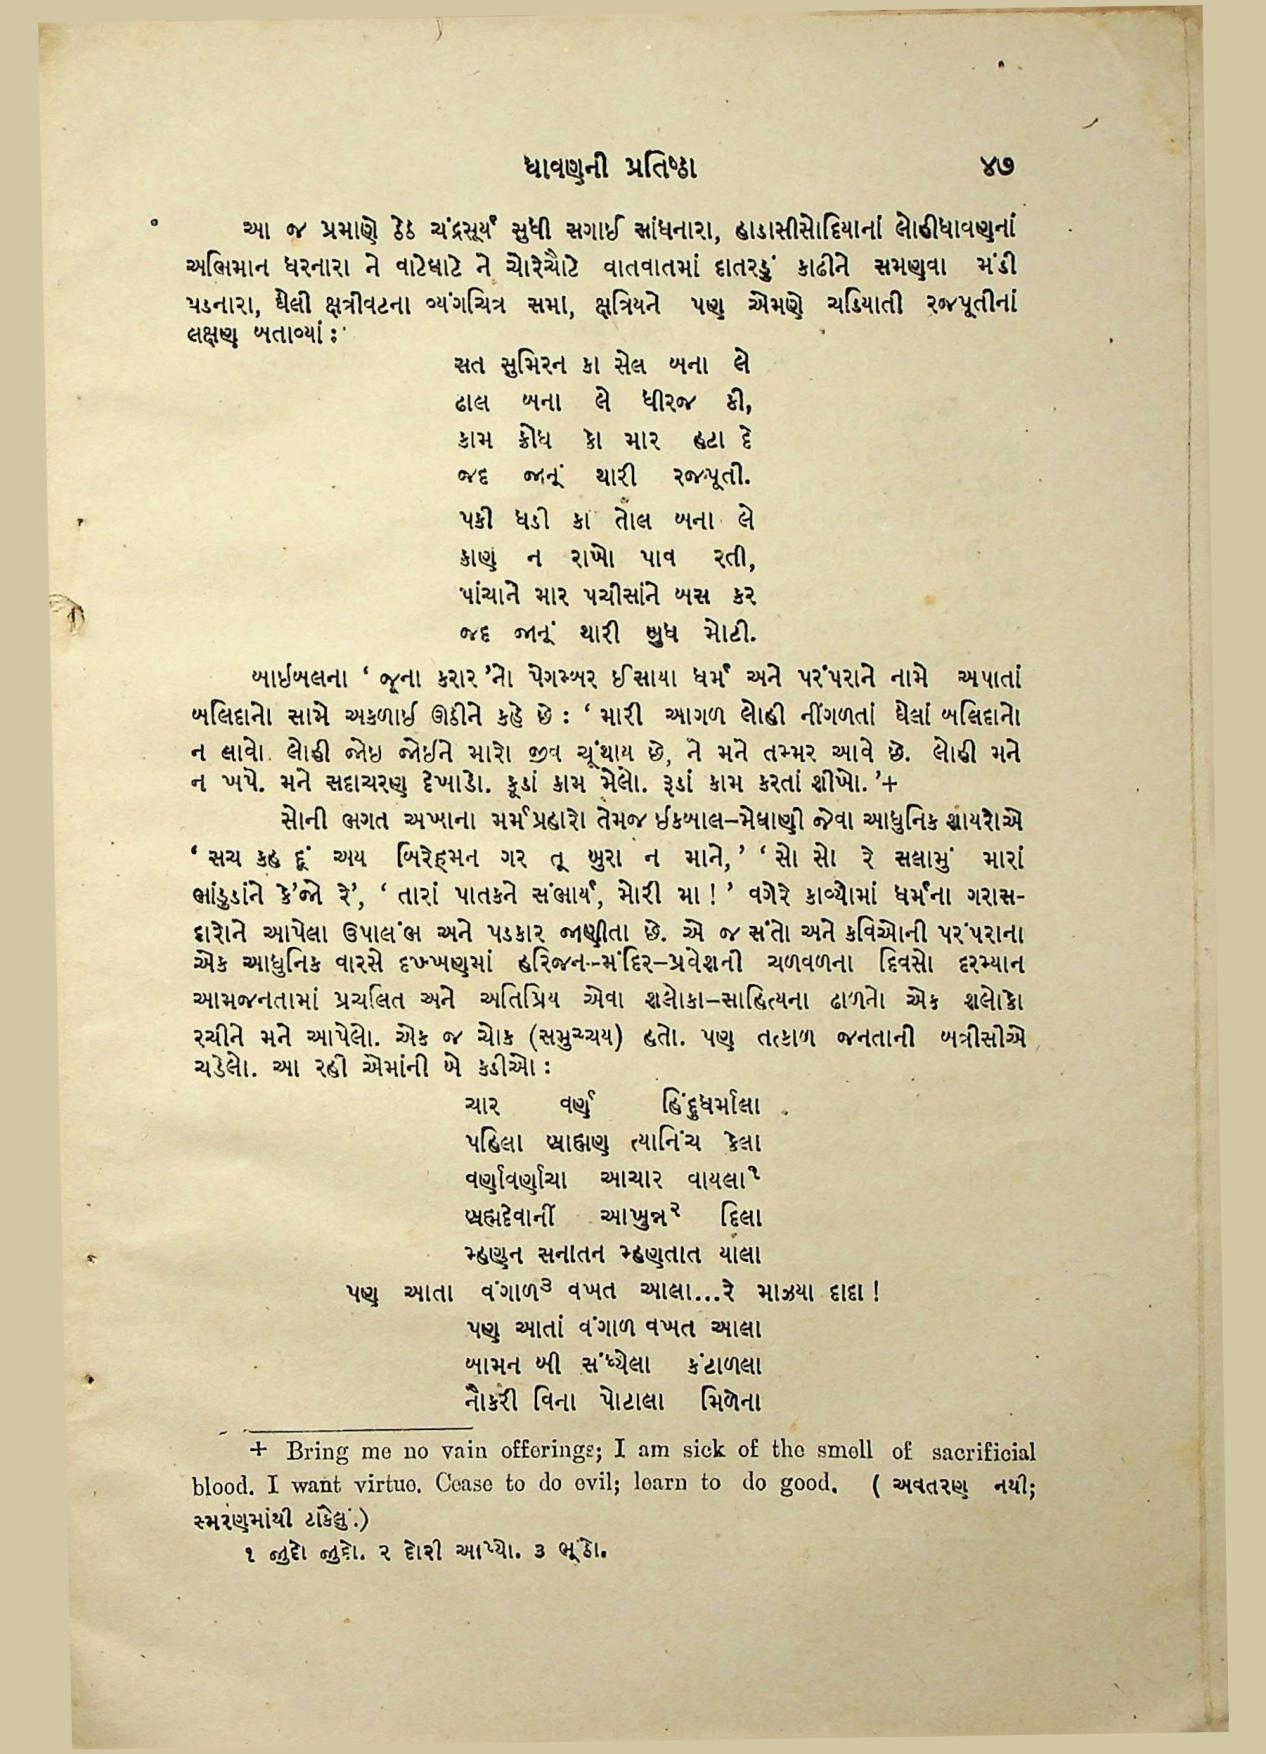 ધાવણની પ્રતિષ્ઠા ૪૭
આ જ પ્રમાણે ઠેઠ ચંદ્રસૂર્ય સુધી સગાઈ સાંધનારા, હાડાસીસોદિયાનાં લોહીધાવણનાં
અભિમાન ધરનારા ને વાટેઘાટે ને ચોરેચૌટે વાતવાતમાં દાતરડું કાઢીને સમણવા મંડી
પડનારા, ઘેલી ક્ષત્રીવટના વ્યંગચિત્ર સમા, ક્ષત્રિયને પણ એમણે ચડિયાતી રજપૂતીનાં
લક્ષણ બતાવ્યાં:
સત સુમિરન કા સેલ બના લે
ઢાલ બના લે ધીરજ કી,
કામ ક્રોધ કો માર હટા દે
જદ જાનૂં થારી રજપૂતી.
પકી ધડી કા તોલ બના લે
કાણ ન રાખો પાવ રતી,
પાંચાને માર પચીસાંને બસ કર
જદ જાનૂં થારી બુધ મોટી.
બાઇબલના ‘ જૂના કરાર ’નો પેગમ્બર ઈસાયા ધર્મ અને પરંપરાને નામે અપાતાં
બલિદાનો સામે અકળાઈ ઊઠીને કહે છે : ‘ મારી આગળ લોહી નીંગળતાં ઘેલાં બલિદાનો
ન લાવો. લોહી જોઇ જોઈને મારો જીવ ચૂંથાય છે, ને મને તમ્મર આવે છે. લોહી મને
ન ખપે. મને સદાચરણ દેખાડો. કૂડાં કામ મેલો. રૂડાં કામ કરતાં શીખો. ’+
સોની ભગત અખાના મર્મપ્રહારો તેમજ ઈકબાલ–મેઘાણી જેવા આધુનિક શાયરોએ
‘ સચ કહ દૂં અય બિરેહ્મન ગર તૂ બુરા ન માને, ’ ‘ સો સો રે સલામું મારાં
ભાંડુડાંને કે’જો રે’, ‘ તારાં પાતકને સંભાર્ય, મોરી મા ! ’ વગેરે કાવ્યોમાં ધર્મના ગરાસ-
દારોને આપેલા ઉપાલંભ અને પડકાર જાણીતા છે. એ જ સંતો અને કવિઓની પરંપરાના
એક આધુનિક વારસે દખ્ખણમાં હરિજન–મંદિર–પ્રવેશની ચળવળના દિવસો દરમ્યાન
આમજનતામાં પ્રચલિત અને અતિપ્રિય એવા શલોકા–સાહિત્યના ઢાળનો એક શલોકો
રચીને મને આપેલો. એક જ ચોક (સમુચ્ચય) હતો. પણ તત્કાળ જનતાની બત્રીસીએ
ચડેલો. આ રહી એમાંની બે કડીઓ :
ચાર વર્ણ હિંદુધર્માલા
પહિલા બ્રાહ્મણ ત્યાનિંચ કેલા
વર્ણાવર્ણાચા આચાર વાયલા૧
બ્રહ્મદેવાનીં આખુન્ન૨ દિલા
મ્હણુન સનાતન મ્હણતાત યાલા
પણ આતા વંગાળ૩ વખત આલા...રે માઝયા દાદા !
પણ આતાં વંગાળ વખત આલા
બામન બી સંધ્યેલા કંટાળલા
નૌકરી વિના પોટાલા મિળેના
+ Bring me no vain offerings; I am sick of the smell of sacrificial
blood. I want virtue. Cease to do evil; learn to do good. ( અવતરણ નથી;
સ્મરણમાંથી ટાંકેલું.)
૧ જુદો જુદો. ૨ દોરી આપ્યો. ૩ ભૂંડો.